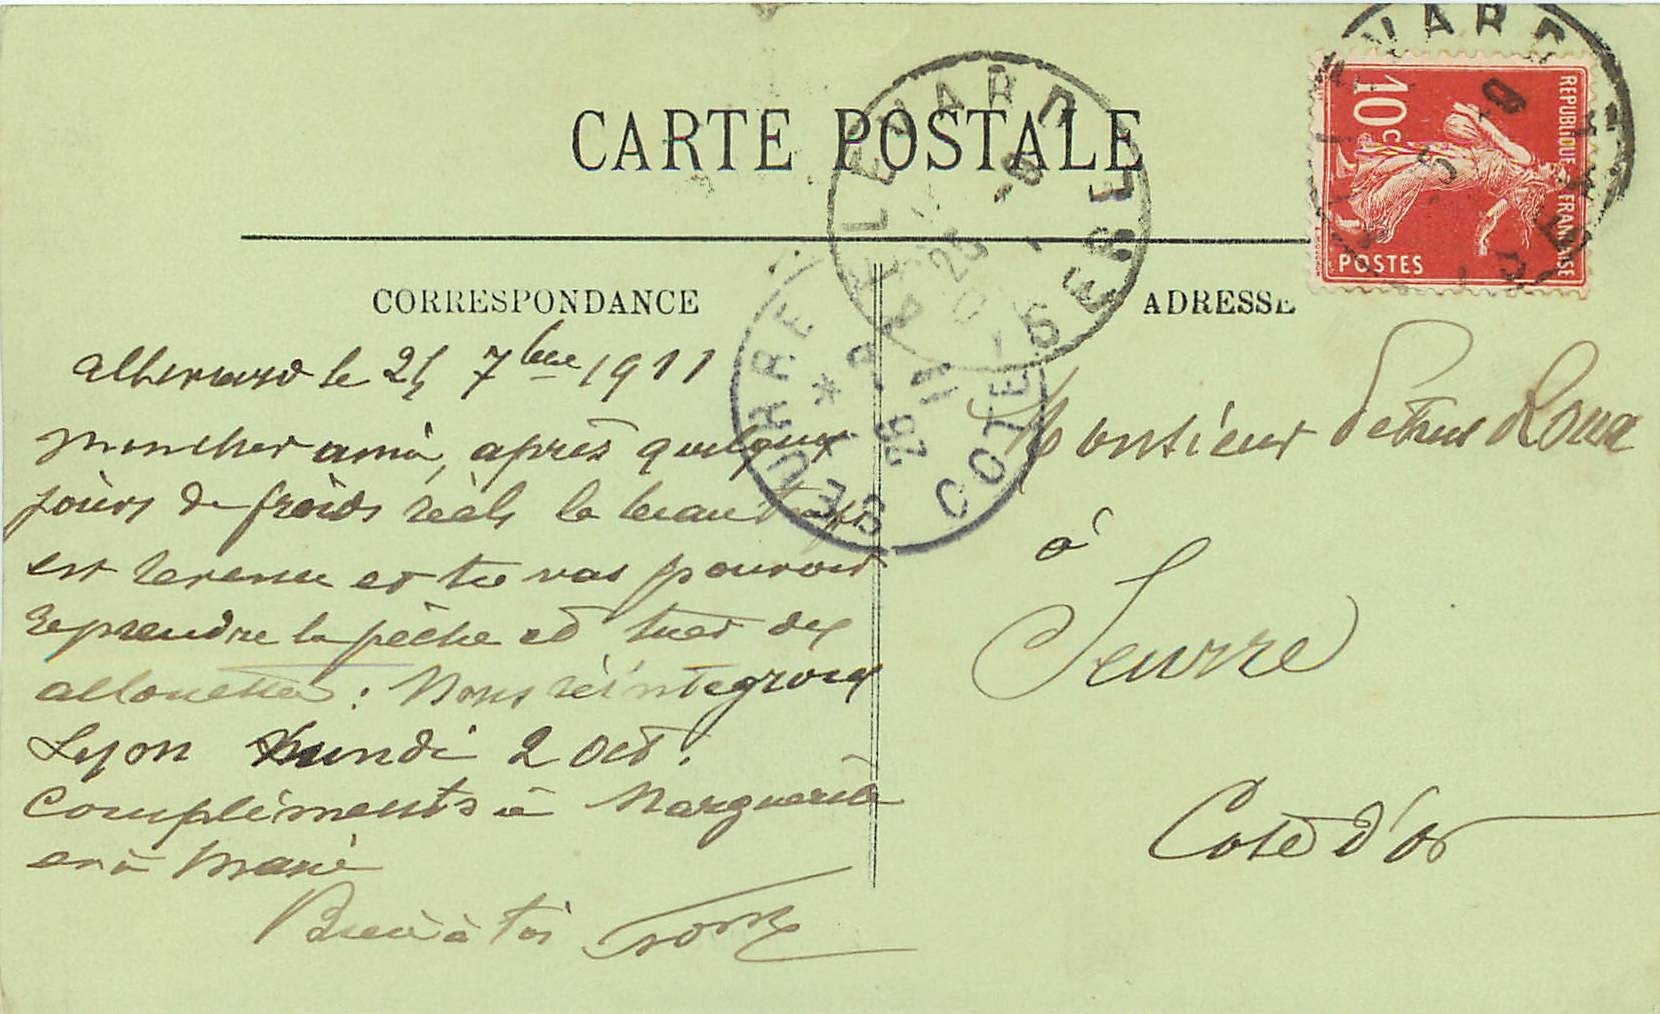 CARTE POSTALE
CORRESPONDANCE
ADRESSE
REPUBLIQUE FRANÇAISE
10 c
POSTES
ALLEVARD
ISERE
25
SEURRE
COTE
26
11
Allevard le 25 7bre 1911
mon cher ami, après quelques
jours de froids réels le beau
est revenu et tu vas pouvoir
reprendre la pêche et tuer des
allouettes : Nous réintegrons
Lyon Lundi 2 Oct.
Compliments à Marguerite
et à Marie
Bien à toi
Monsieur Petrus Roux
à
Seurre
Cote d'Or